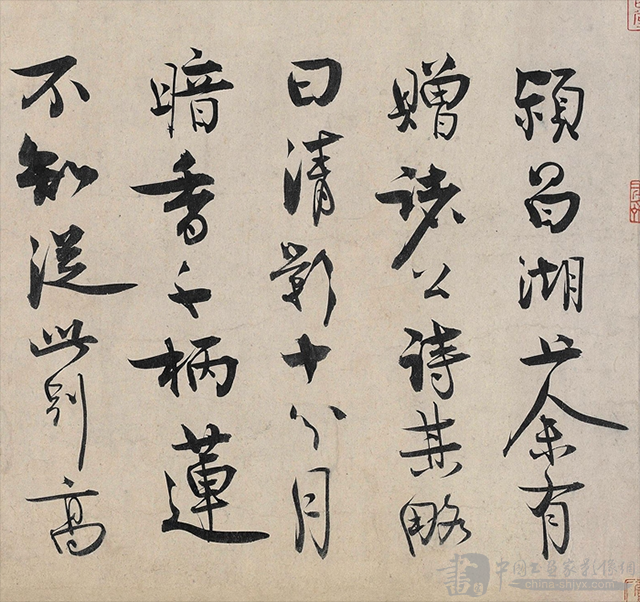 潁昌湖上余有
贈諸公詩其略
曰清影十分月
暗香千柄蓮
不知從此別高
中国书画家影像网
china-shjyx.com